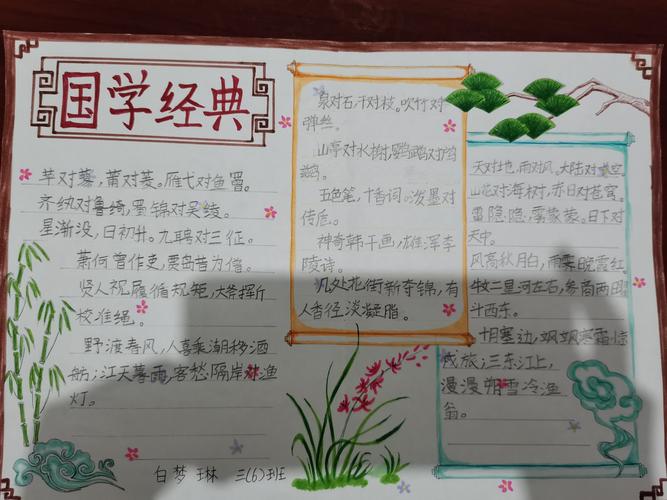 国学经典
芊对蓼,莆对菱。雁弋对鱼罾。
齐纨对鲁绮,蜀锦对吴绫。
星渐没,日初升。九聘对三征。
萧何曾作吏,贾岛昔为僧。
贤人视履循规矩,大斧挥斤
校准绳。
野渡春风,人喜乘潮移酒
舫;江天暮雨,客愁隔岸对渔
灯。
泉对石,干对枝。吹竹对
弹丝。
山亭对水榭,鹦鹉对鸬
鹚。
五色笔,十香词。泼墨对
传卮。
神奇韩干画,雄浑李
陵诗。
几处花街新夺锦,有
人香径淡凝脂。
天对地,雨对风。大陆对空。
山花对海树,赤日对苍穹。
雷隐隐,雾蒙蒙。日下对
天中。
风高秋月白,雨霁晚霞红。
牛女二星河左右,参商两曜
斗西东。
十月塞边,飒飒寒霜惊
戍旅;三冬江上,
漫漫朔雪冷渔
翁。
白梦琳 三(6)班